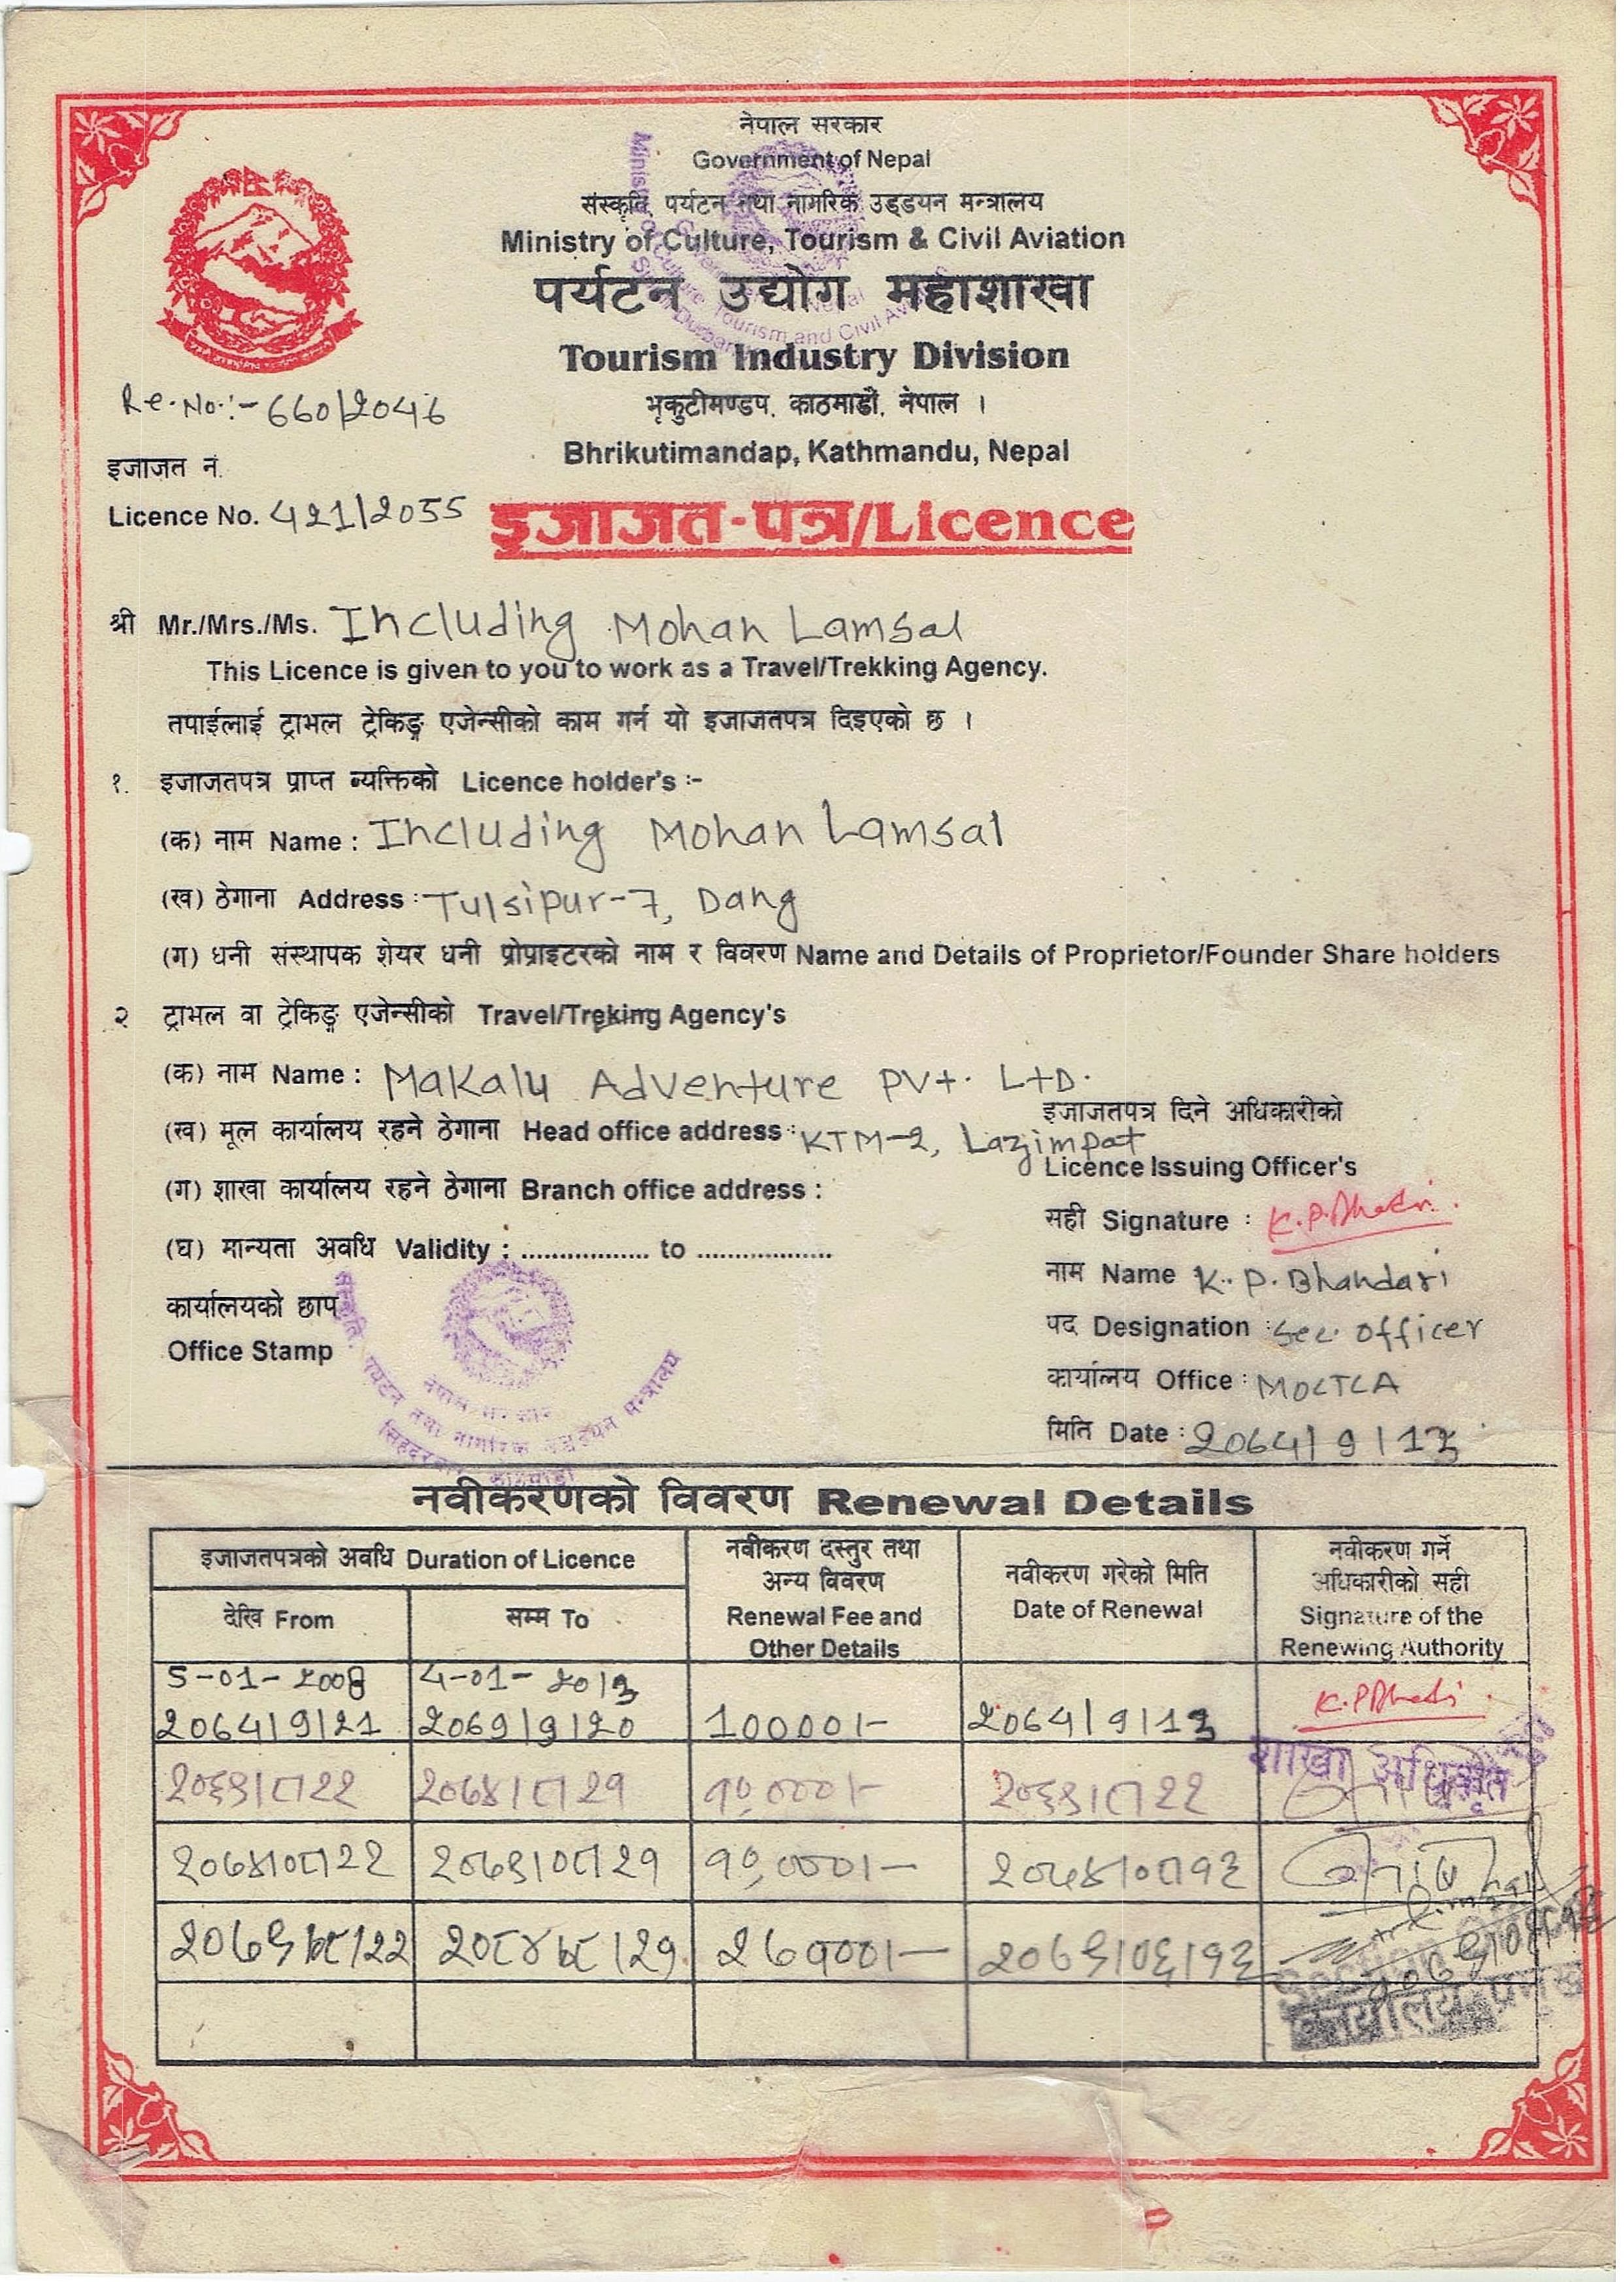 नेपाल सरकार
Government of Nepal
संस्कृति, पर्यटन तथा नागरिक उड्डयन मन्त्रालय
Ministry of Culture, Tourism & Civil Aviation
पर्यटन उद्योग महाशाखा
Tourism Industry Division
Re. No.:- 660/2046
भृकुटीमण्डप, काठमाडौं, नेपाल ।
Bhrikutimandap, Kathmandu, Nepal
इजाजत नं.
Licence No. 421/2055
इजाजत-पत्र/Licence
श्री Mr./Mrs./Ms. Including Mohan Lamsal
This Licence is given to you to work as a Travel/Trekking Agency.
तपाईलाई ट्राभल ट्रेकिङ्ग एजेन्सीको काम गर्न यो इजाजतपत्र दिइएको छ ।
१. इजाजतपत्र प्राप्त ब्यक्तिको Licence holder's :-
(क) नाम Name : Including Mohan Lamsal
(ख) ठेगाना Address : Tulsipur-7, Dang
(ग) धनी संस्थापक शेयर धनी प्रोप्राइटरको नाम र विवरण Name and Details of Proprietor/Founder Share holders
२ ट्राभल वा ट्रेकिङ्ग एजेन्सीको Travel/Treking Agency's
(क) नाम Name : Makalu Adventure Pvt. LtD.
(ख) मूल कार्यालय रहने ठेगाना Head office address : KTM-2, Lazimpat
(ग) शाखा कार्यालय रहने ठेगाना Branch office address :
(घ) मान्यता अवधि Validity : ................. to ..................
कार्यालयको छाप
Office Stamp
इजाजतपत्र दिने अधिकारीको
Licence Issuing Officer's
सही Signature :
नाम Name K. P. Bhandari
पद Designation : Sec. Officer
कार्यालय Office : MOCTCA
मिति Date : 2064/9/13
नेपाल सरकार
संस्कृति, पर्यटन तथा नागरिक उड्डयन मन्त्रालय
नवीकरणको विवरण Renewal Details
इजाजतपत्रको अवधि Duration of Licence
देखि From
सम्म To
नवीकरण दस्तुर तथा
अन्य विवरण
Renewal Fee and
Other Details
नवीकरण गरेको मिति
Date of Renewal
नवीकरण गर्ने
अधिकारीको सही
Signature of the
Renewing Authority
5-01-2008 4-01-2013
2064/9/21 2069/9/20 10000/- 2064/9/13
शाखा अधिकृत
२०६९।८।२२ २०७४।८।२१ १०,०००।- २०६९।८।२२
२०७४।०८।२२ २०७९।०८।२१ १०,०००।- २०७४।०८।१३
२०७९।८।२२ २०८४।८।२१ २७०००।- २०७९।०६।१३
कार्यालय प्रमुख